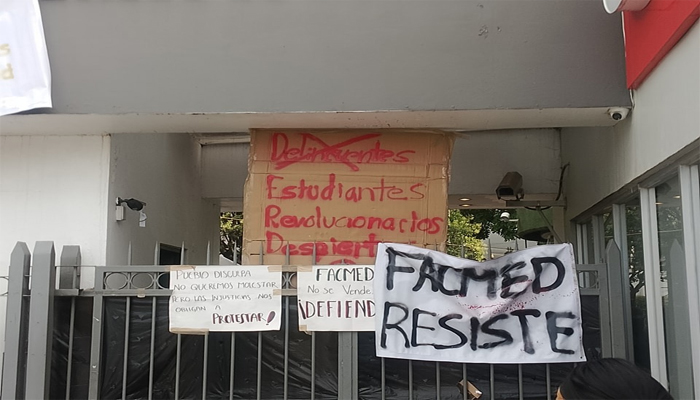 Delincuentes
Estudiantes
Revolucionarios
PUEBLO DISCULPA
NO QUEREMOS MOLESTAR
PERO LAS INJUSTICIAS NOS
OBLIGAN A
PROTESTAR!
FACMED
No se Vende
¡DEFIEND
FACMED
RESISTE